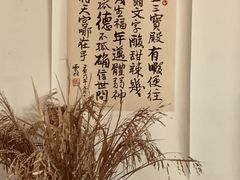 三寶殿有暇便往
文字酸甜辣幾
生福年邁體弱神
孤德不孤確信世間
天宮哪在乎